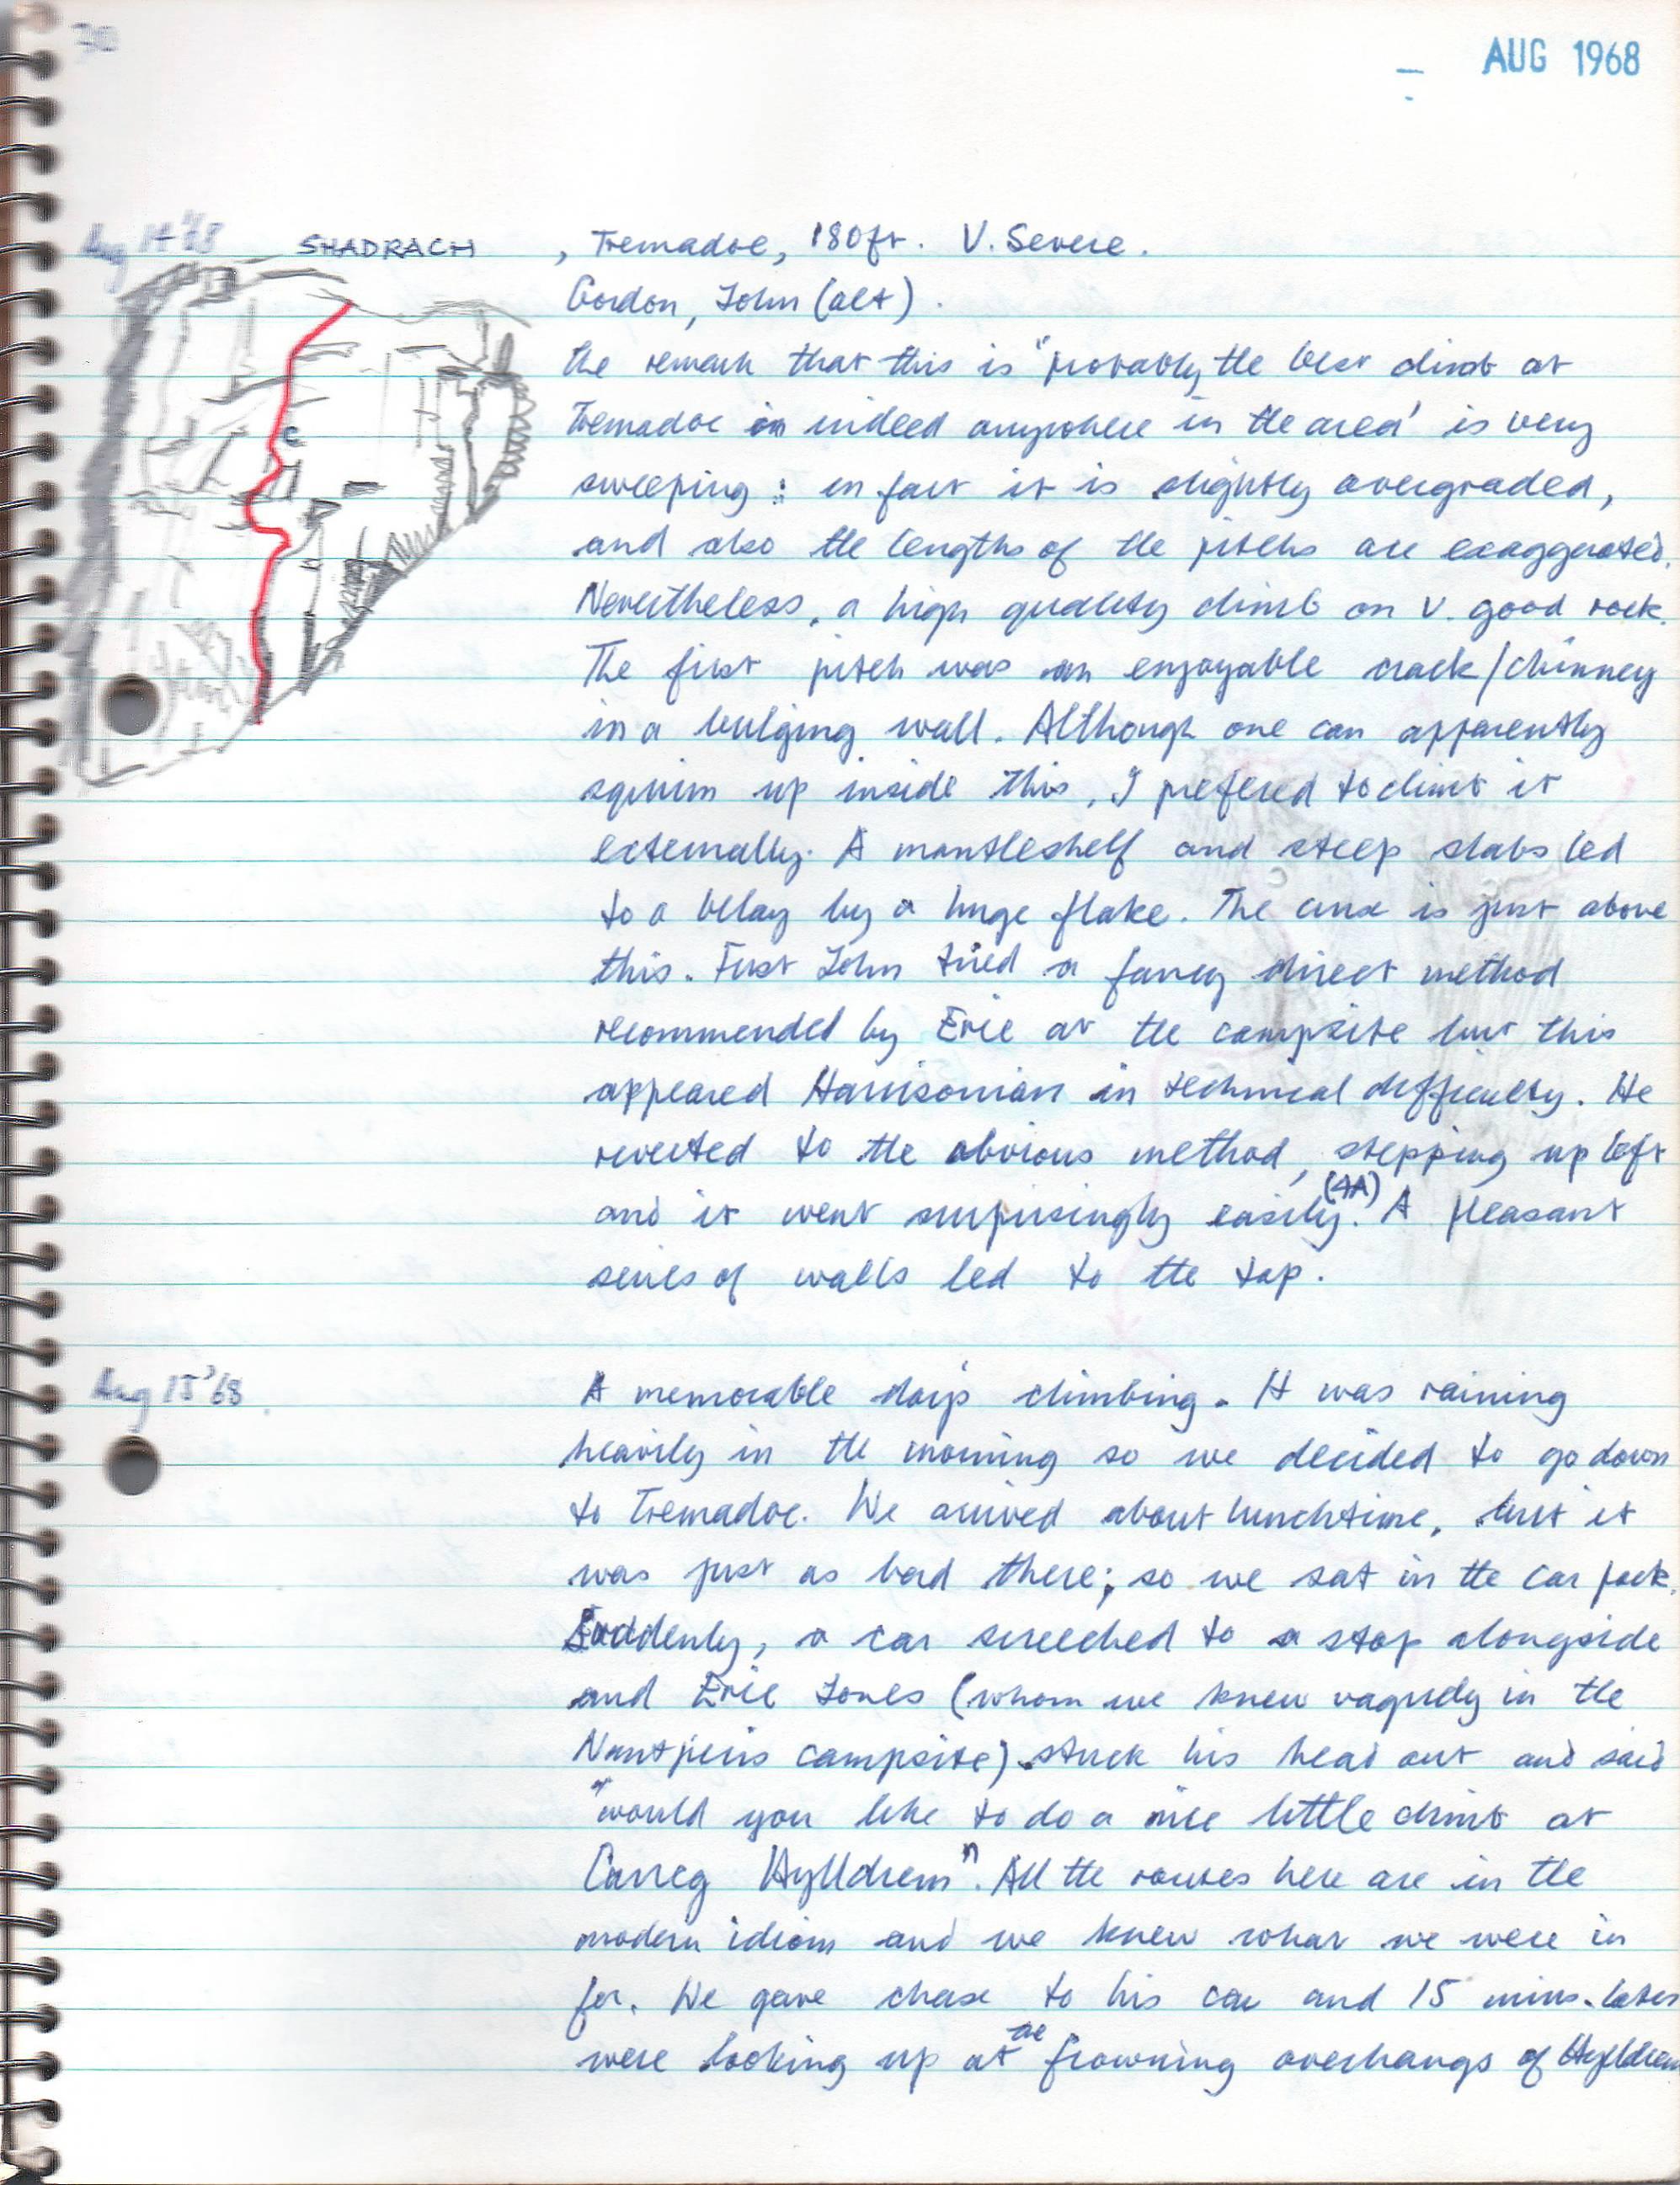 AUG 1968
Aug 14 '68 SHADRACH , Tremadoc, 180ft. V. Severe.
Gordon, John (alt).
The remark that this is "probably the best climb at
Tremadoc or indeed anywhere in the area' is very
sweeping : in fact it is slightly overgraded,
and also the lengths of the pitches are exaggerated.
Nevertheless, a high quality climb on v. good rock.
The first pitch was an enjoyable crack/chimney
in a bulging wall. Although one can apparently
squirm up inside this, I prefered to climb it
externally. A mantleshelf and steep slabs led
to a belay by a huge flake. The crux is just above
this. First John tried a fancy direct method
recommended by Eric at the campsite but this
appeared Harrisonian in technical difficulty. He
reverted to the obvious method, stepping up left
and it went surprisingly easily. (4A) A pleasant
series of walls led to the top.
Aug 15 '68 A memorable day's climbing. It was raining
heavily in the morning so we decided to go down
to Tremadoc. We arrived about lunchtime, but it
was just as bad there; so we sat in the car park.
Suddenly, a car screeched to a stop alongside
and Eric Jones (whom we knew vaguely in the
Nantperis campsite) stuck his head out and said
"would you like to do a nice little climb at
Carreg Hylldrem". All the routes here are in the
modern idiom and we knew what we were in
for. We gave chase to his car and 15 mins. later
were looking up at the frowning overhangs of Hylldrem